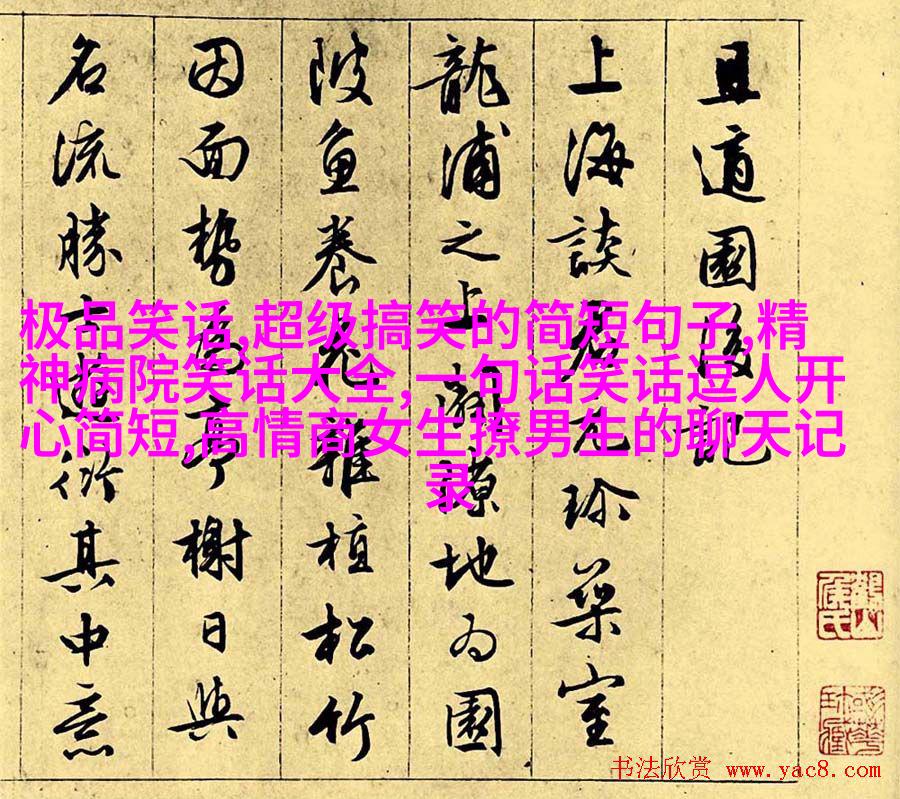 且適園後記
上海談君元珍築室
龍浦之上地为園
陂魚養花雜植松竹
因面勢為亭榭日與
名流勝士遊衍其中意
极品笑话,超级搞笑的简短句子,精
神病院笑话大全,一句话笑话逗人开
心简短,高情商女生撩男生的聊天记
录
书法欣赏 www.yac8.com